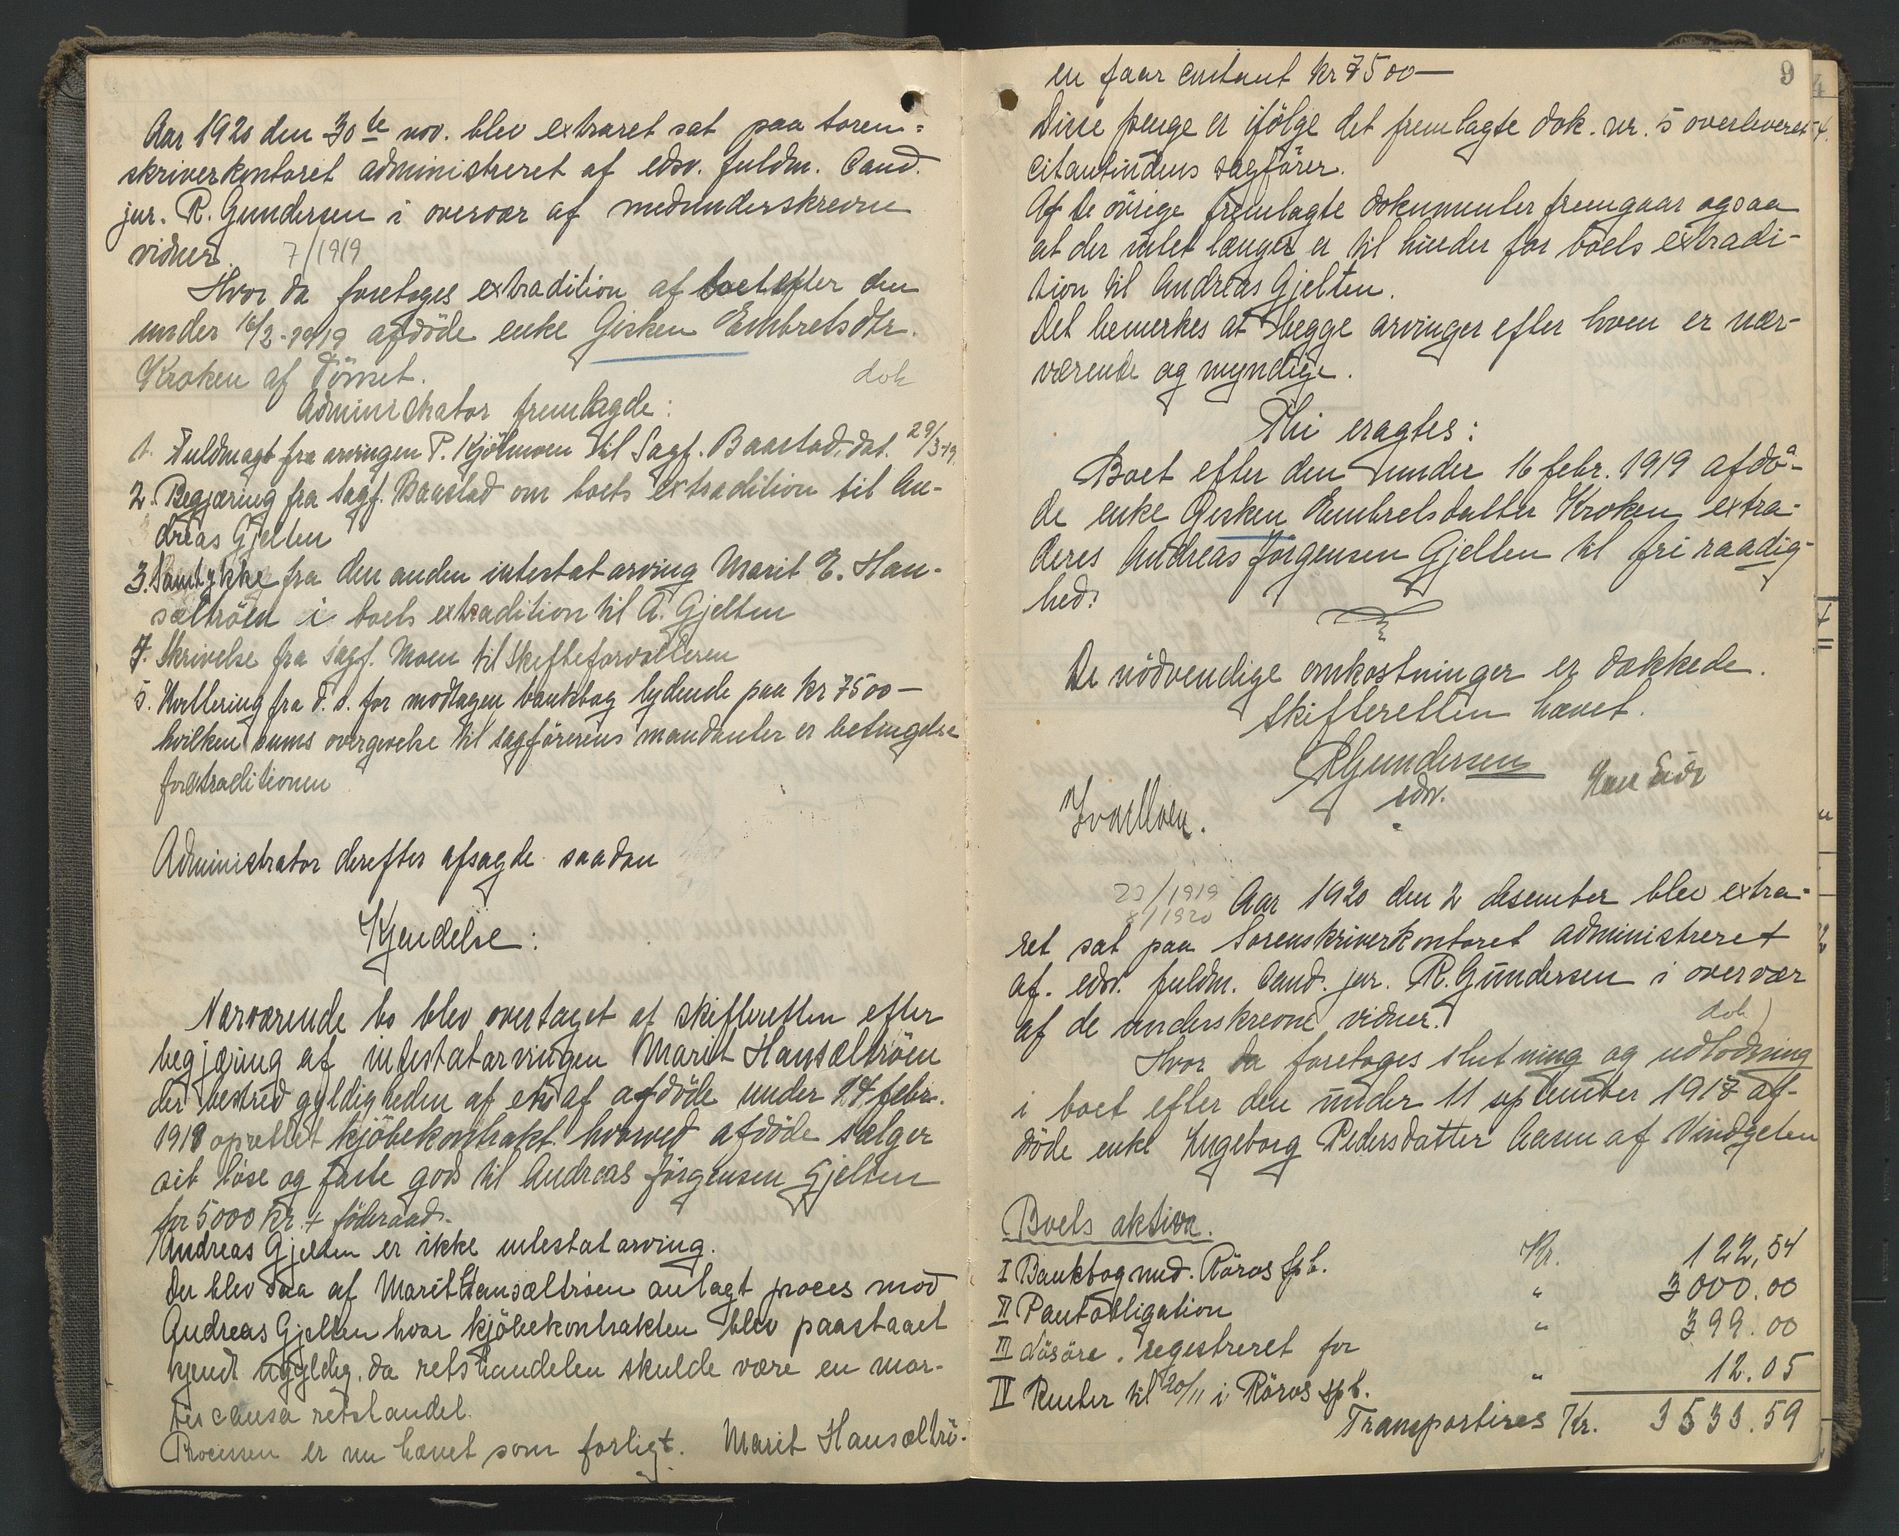 Aar 1920 den 30te nov. blev extraret sat paa soren=
skriverkontoret administreret af edsv. fuldm. Cand.
jur. R. Gundersen i overvær af medunderskrevne
vidner. 7/1919
Hvor da foretages extradition af boet efter den
under 16/2-1919 afdöde enke Gisken Embretsdtr.
Kroken af Tönset. dok
Administrator fremlagde:
1. Fuldmagt fra arvingen P. Kjölmoen til Sagf. Baastad, dat. 29/3-19.
2. Begjæring fra Sagf. Baastad om boets extradition til An-
dreas Gjelten
3. Samtykke fra den anden intestatarving Marit E. Han-
sæltröen i boets extradition til A. Gjelten
4. Skrivelse fra Sagf. Moen til Skifteforvalteren
5. Kvittering fra d. s. for modtagen bankbog lydende paa kr 7500—
hvilken sums overgivelse til sagförerens mandanter er betingelse
for extraditionen
Administrator derefter afsagde saadan
Kjendelse:
Nærværende bo blev overtaget af skifteretten efter
begjæring af intestatarvingen Marit Hansæltröen
der bestred gyldigheden af en af afdöde under 14 febr.
1918 oprettet kjöbekontrakt hvorved afdöde sælger
sit löse og faste gods til Andreas Jörgensen Gjelten
for 5000 kr. + föderaad.
Andreas Gjelten er ikke intestatarving.
Der blev saa af Marit Hansæltröen anlagt proces mod
Andreas Gjelten hvor kjöbekontrakten blev paastaaet
kjendt ugyldig, da retshandelen skulde være en mor-
tis causa retshandel.
Processen er nu hævet som forligt. Marit Hansæltrö-
9
en faar contant kr 7500—
Disse penge er ifölge det fremlagte dok. nr. 5 overleveret
citantindens sagförer.
Af de övrige fremlagte dokumenter fremgaar ogsaa
at der intet længer er til hinder for boets extradi-
tion til Andreas Gjelten.
Det bemerkes at begge arvinger efter loven er nær-
værende og myndige.
Thi eragtes:
Boet efter den under 16 febr. 1919 afdö-
de enke Gisken Embretsdatter Kroken extra-
deres Andreas Jörgensen Gjelten til fri raadig-
hed.
De nödvendige omkostninger er dækkede.
Skifteretten hævet.
RGundersen
edsv.
Ivar Moen.
23/1919
8/1920
Aar 1920 den 2 desember blev extra-
ret sat paa Sorenskriverkontoret administreret
af. edsv. fuldm. Cand. jur. R. Gundersen i overvær
af de underskrevne vidner. dok
Hvor da foretages slutning og udlodning
i boet efter den under 11 september 1917 af-
döde enke Ingeborg Pedersdatter Aasen af Vindgelen
Boets aktiva.
I Bankbog med Röros spb. Kr. 122,54
II Pantobligation " 3000.00
III Lösöre, registreret for " 399.00
IV Renter til 20/11 i Röros spb. " 12.05
Transporteres Kr. 3533.59